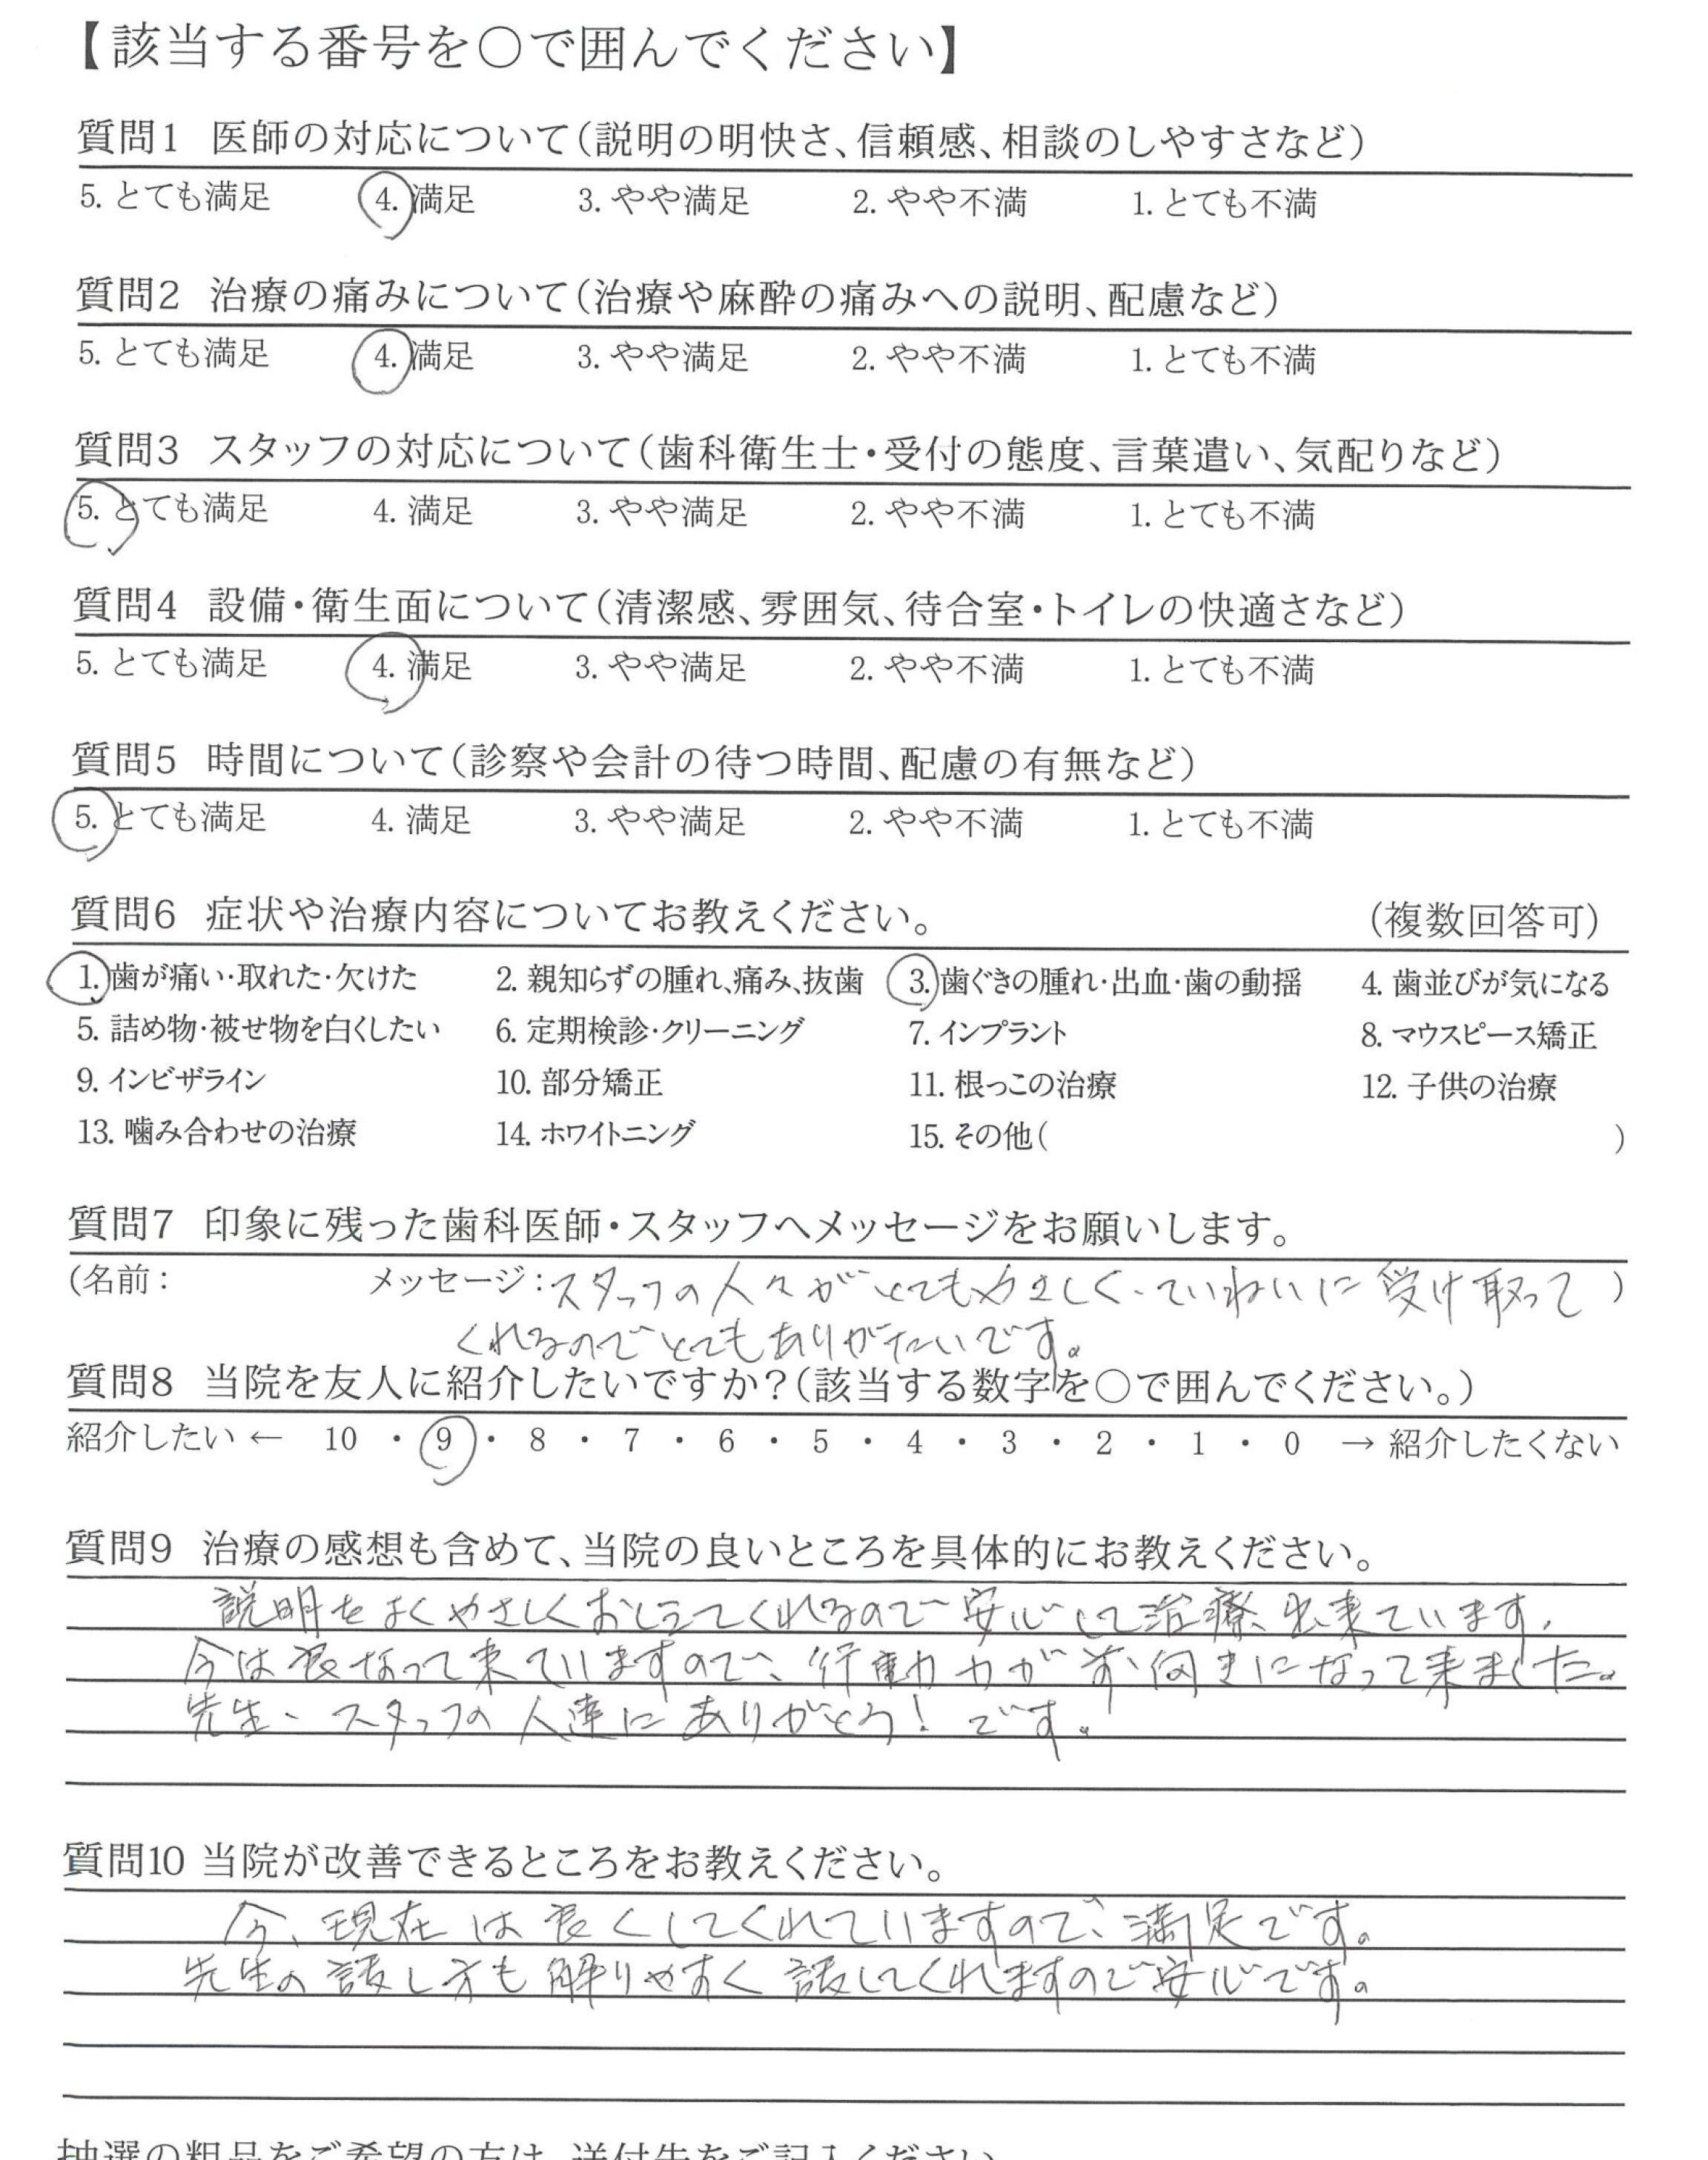 【該当する番号を○で囲んでください】
質問1 医師の対応について(説明の明快さ、信頼感、相談のしやすさなど)
5. とても満足 4. 満足 3. やや満足 2. やや不満 1. とても不満
質問2 治療の痛みについて(治療や麻酔の痛みへの説明、配慮など)
5. とても満足 4. 満足 3. やや満足 2. やや不満 1. とても不満
質問3 スタッフの対応について(歯科衛生士・受付の態度、言葉遣い、気配りなど)
5. とても満足 4. 満足 3. やや満足 2. やや不満 1. とても不満
質問4 設備・衛生面について(清潔感、雰囲気、待合室・トイレの快適さなど)
5. とても満足 4. 満足 3. やや満足 2. やや不満 1. とても不満
質問5 時間について(診察や会計の待つ時間、配慮の有無など)
5. とても満足 4. 満足 3. やや満足 2. やや不満 1. とても不満
質問6 症状や治療内容についてお教えください。 (複数回答可)
1. 歯が痛い・取れた・欠けた 2. 親知らずの腫れ、痛み、抜歯 3. 歯ぐきの腫れ・出血・歯の動揺 4. 歯並びが気になる
5. 詰め物・被せ物を白くしたい 6. 定期検診・クリーニング 7. インプラント 8. マウスピース矯正
9. インビザライン 10. 部分矯正 11. 根っこの治療 12. 子供の治療
13. 噛み合わせの治療 14. ホワイトニング 15. その他( )
質問7 印象に残った歯科医師・スタッフへメッセージをお願いします。
(名前: メッセージ:スタッフの人々がとてもやさしく、ていねいに受け取って )
くれるのでとてもありがたいです。
質問8 当院を友人に紹介したいですか?(該当する数字を○で囲んでください。)
紹介したい ← 10 ・ 9 ・ 8 ・ 7 ・ 6 ・ 5 ・ 4 ・ 3 ・ 2 ・ 1 ・ 0 → 紹介したくない
質問9 治療の感想も含めて、当院の良いところを具体的にお教えください。
説明をよくやさしくおしえてくれるので安心して治療出来ています。
今は良なって来ていますので、行動力が前向きになって来ました。
先生、スタッフの人達にありがとう!です。
質問10 当院が改善できるところをお教えください。
今、現在は良くしてくれていますので、満足です。
先生の話し方も解りやすく話してくれますので安心です。
抽選の粗品をご希望の方は、送付先をご記入ください